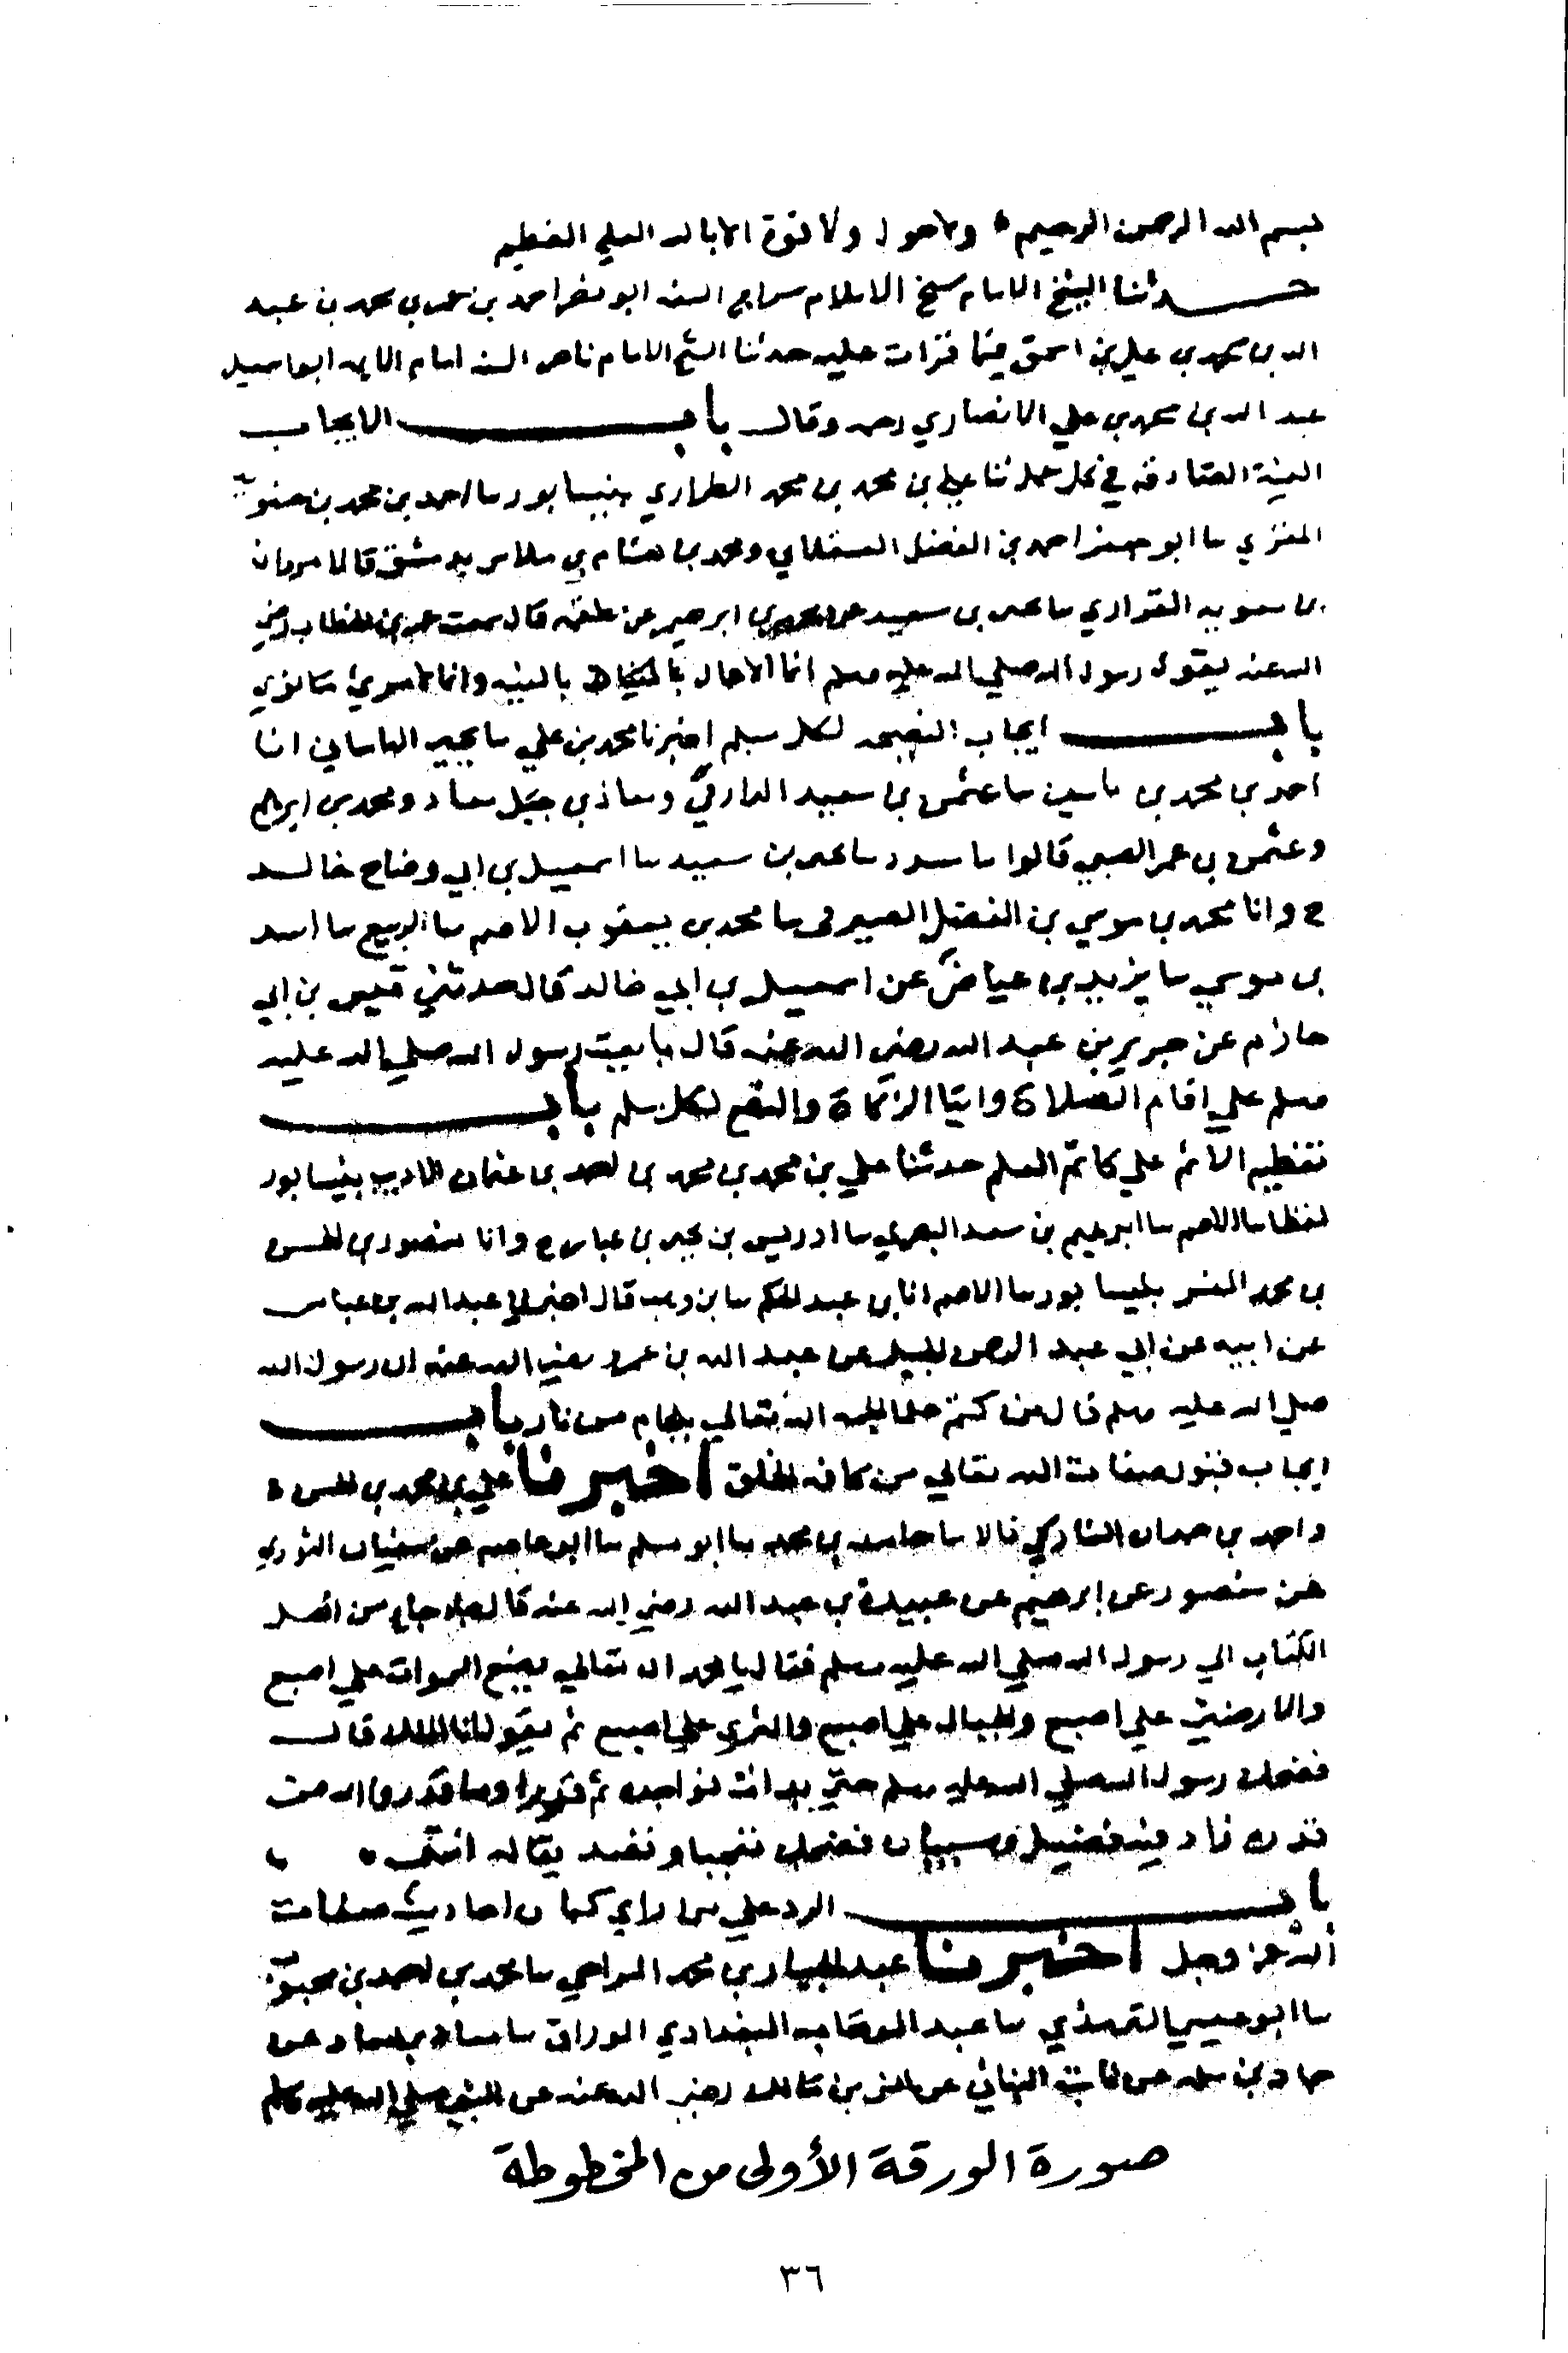 بسم الله الرحمن الرحيم ولا حول ولا قوة الا بالله العلي العظيم
حدثنا الشيخ الامام شيخ الاسلام سراج السنه ابو نصر احمد بن محمد بن عبد
الله بن محمد بن علي بن اسحق فيما قرات عليه حدثنا الشيخ الامام ناصر السنه امام الايمه ابو اسمعيل
عبد الله بن محمد بن علي الانصاري رحمه وقال باب الايجاب
النية الصادقه في كل عمل ثنا علي بن محمد بن محمد الطرازي بنيسابور سا احمد بن محمد بن حسنويه
المقري سا ابو جعفر احمد بن الفضل العسقلاني ومحمد بن هشام بن ملاس بدمشق قالا مروان
بن معويه الفزاري سا يحيى بن سعيد عن محمد بن ابرهيم عن علقمه قال سمعت عمر بن الخطاب رضي
الله عنه يقول رسول الله صلي الله عليه وسلم انما الاعمال بالنية وانما لامرئ ما نوي
باب ايجاب النصيحه لكل مسلم اخبرنا محمد بن علي سا انا
احمد بن محمد بن ياسين سا عثمن بن سعيد الدارمي ومعاذ بن ومحمد بن ابرهيم
وعثمن بن عمر الضبي قالوا سا مسدد سا يحيى بن سعيد سا اسمعيل بن ابي خالد
ح وانا محمد بن موسي بن الفضل الصيرفي سا محمد بن يعقوب الاصم سا الربيع سا اسد
بن موسي سا يزيد بن عياض عن اسمعيل بن ابي خالد قال حدثني قيس بن ابي
حازم عن جرير بن عبد الله رضي الله عنه قال بايعت رسول الله صلي الله عليه
وسلم علي اقام الصلاة وايتا الزكاة والنصح لكل مسلم باب
تعظيم الاثم علي كاتم العلم حدثنا علي بن محمد بن محمد بن احمد بن عثمان الاديب بنيسابور
لفظا سا الاصم سا ابرهيم بن سعد البصري سا ادريس بن يحيى بن عباس ح وانا منصور بن الحسن
بن محمد المفسر بنيسابور سا الاصم انا بن عبد الحكم سا بن وهب قال اخبرني عبد الله بن عباس
عن ابيه عن ابي عبد الرحمن الحبلي عن عبد الله بن عمرو رضي الله عنه ان رسول الله
صلي الله عليه وسلم قال من كتم علما الجمه الله تعالي بلجام من نار باب
ايجاب قبول صفات الله تعالي من كافه الخلق اخبرنا علي بن محمد بن الحسن
واحمد بن حمدان الشاركي قالا سا حامد بن محمد سا ابو مسلم سا ابو عاصم عن سفيان الثوري
عن منصور عن ابرهيم عن عبيدة بن عبد الله رضي الله عنه قال جاء من اهل
الكتاب الي رسول الله صلي الله عليه وسلم فقال يا محمد ان الله تعالي يضع السموات علي اصبع
والارضين علي اصبع والجبال علي اصبع والثري علي اصبع ثم يقول انا الملك قال
فضحك رسول الله صلي الله عليه وسلم حتي بدات نواجذه ثم قرا وما قدروا الله حق
قدره زاد فيه فضيل وسيبان فضحك تعجبا وتصديقا له
باب الرد علي من راي كتمان احاديث صفات
الله عز وجل اخبرنا عبد الجبار بن محمد الجراحي سا محمد بن احمد بن محبوب
سا ابو عيسي الترمذي سا عبد الوهاب البغدادي الوراق سا معاذ بن معاذ عن
حماد بن سلمه عن ثابت البناني عن انس بن مالك رضي الله عنه عن النبي صلي الله عليه وسلم
صورة الورقة الأولى من المخطوطة
٣٦